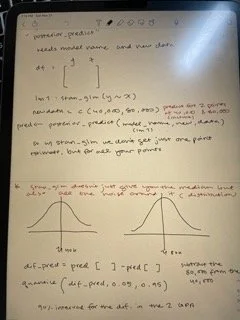 posterior_predict
needs model name and new data
y x
df = [ ]
lm1: stan_glm (y ~ x)
new data = c (40,000, 80,000) predict for 2 points
at 40,000 & 80,000
pred = posterior_predict (model_name, new_data)
(lm1)
so w stan_glm we don't get just one point
estimate, but for all your points
stan_glm doesn't just give you the medium but
also all the noise around it (distribution)
40k 80k
dif_pred = pred [ ] - pred [ ] subtract the
80,000 from the
40,000
quantile (dif_pred, 0.05, 0.95)
90% interval for the dif. in the 2 GPA